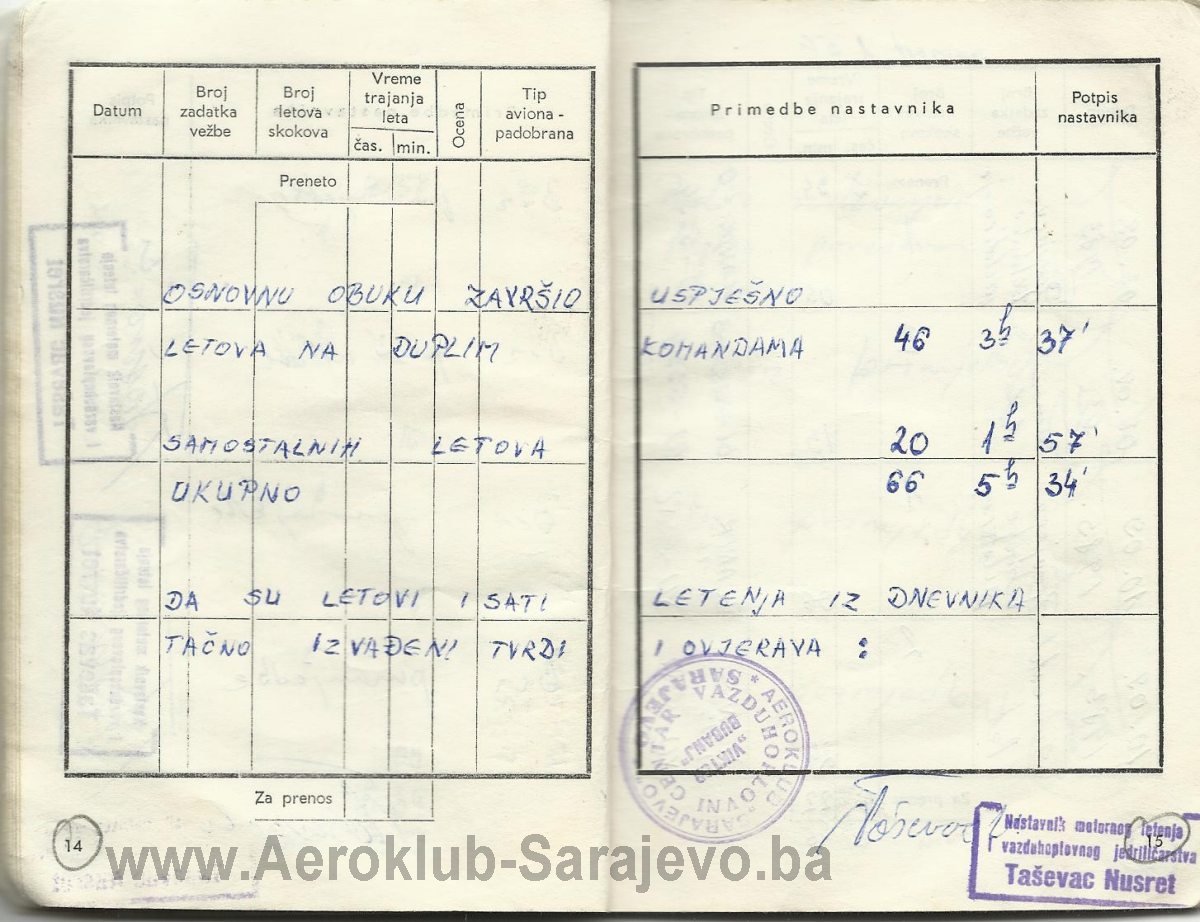 Datum
Broj zadatka vežbe
Broj letova skokova
Vreme trajanja leta
čas. min.
Ocena
Tip aviona - padobrana
Primedbe nastavnika
Potpis nastavnika
Preneto
OSNOVNU OBUKU ZAVRŠIO USPJEŠNO
LETOVA NA DUPLIM KOMANDAMA 46 3h 37'
SAMOSTALNIH LETOVA 20 1h 57'
UKUPNO 66 5h 34'
DA SU LETOVI I SATI LETENJA IZ DNEVNIKA
TAČNO IZVAĐENI TVRDI I OVJERAVA :
Za prenos
* AEROKLUB SARAJEVO
VAZDUHOPLOVNI CENTAR SARAJEVO
"VIKTOR BUBANJ"
Nastavnik motornog letenja
i vazduhoplovnog jedriličarstva
Taševac Nusret
14
15
www.Aeroklub-Sarajevo.ba